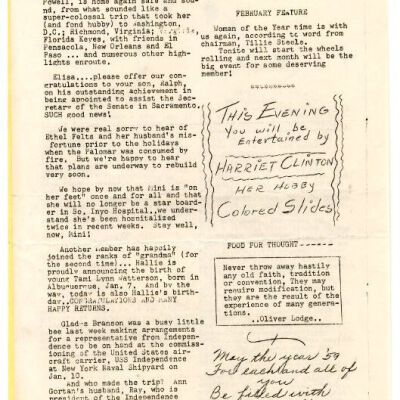 Powell, is home again safe and
sound, from what sounded like a
super-colossal trip that took her
(and fond hubby) to Washington,
D.C.; Richmond, Virginia;
Florida Keyes, with friends in
Pensacola, New Orleans and El
Paso ... and numerous other high-
lights enroute.
Elisa....please offer our con-
gratulations to your son, Ralph,
on his outstanding achievement in
being appointed to assist the Sec-
retary of the Senate in Sacramento.
SUCH good news!
We were real sorry to hear of
Ethel Felts and her husband's mis-
fortune prior to the holidays
when the Palomar was consumed by
fire. But we're happy to hear
that plans are underway to rebuild
very soon.
We hope by now that Mini is "on
her feet" once and for all and that
she will no longer be a star board-
er in So. Inyo Hospital..we under-
stand she's been hospitalized
twice in recent weeks. Stay well,
now, Mini!
Another member has happily
joined the ranks of "grandma" (for
the second time)... Hallie is
proudly announcing the birth of
young Tami Lynn Watterson, born in
Albuquerque, Jan. 7, and by the
way, today is also Hallie's birth-
day..CONGRATULATIONS AND MANY
HAPPY RETURNS.
Gladys Branson was a busy little
bee last week making arrangements
for a representative from Indepen-
dence to be on hand at the commis-
sioning of the United States air-
craft carrier, USS Independence
at New York Naval Shipyard on
Jan. 10.
And who made the trip? Ann
Gortan's husband, Ray, who is
president of the Independence
FEBRUARY FEATURE
Woman of the Year time is with
us again, according to word from
chairman, Tillie Steele.
Tonite will start the wheels
rolling and next month will be the
big event for some deserving
member!
THIS EVENING
You will be
Entertained by
HARRIET CLINTON
HER HOBBY
Colored Slides
FOOD FOR THOUGHT------
Never throw away hastily
any old faith, tradition
or convention, They may
require modification, but
they are the result of the
experience of many genera-
tions.
..Oliver Lodge..
May the year '59
For each and all of
you
Be filled with